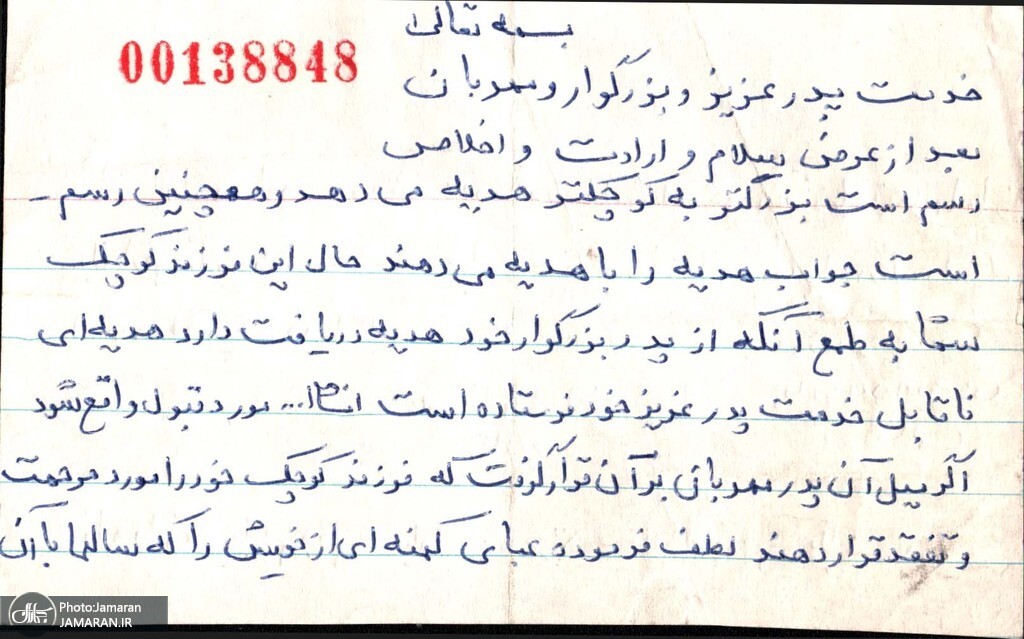 بسمه تعالی
00138848
خدمت پدر عزیز و بزرگوار و مهربان
بعد از عرض سلام و ارادت و اخلاص
رسم است بزرگتر به کوچکتر هدیه می دهد و همچنین رسم -
است جواب هدیه را با هدیه می دهند حال این فرزند کوچک
شما به طمع آنکه از پدر بزرگوار خود هدیه دریافت دارد هدیه ای
ناقابل خدمت پدر عزیز خود فرستاده است انشاا... مورد قبول واقع شود
اگر میل آن پدر مهربان بر آن قرار گرفت که فرزند کوچک خود را مورد مرحمت
و تفقد قرار دهند لطف فرموده عبای کهنه ای از خویش را که سالها با آن
Photo:Jamaran
JAMARAN.IR